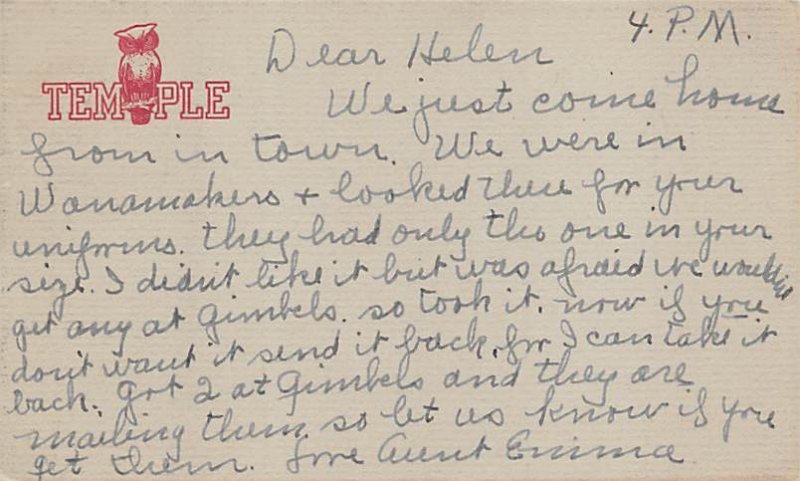 4. P.M.
Dear Helen
TEMPLE
We just come home
from in town. We were in
Wanamakers + looked there for your
uniforms. they had only the one in your
size. I didn't like it but was afraid we wouldn't
get any at Gimbels. so took it. now if you
don't want it send it back, for I can take it
back. got 2 at Gimbels and they are
mailing them so let us know if you
get them. Love Aunt Emma